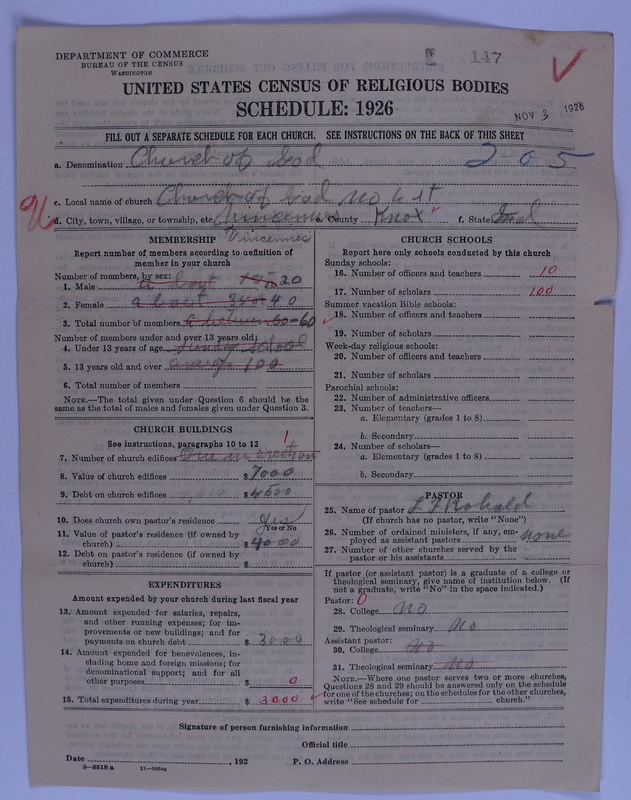 DEPARTMENT OF COMMERCE
BUREAU OF THE CENSUS
WASHINGTON
147
UNITED STATES CENSUS OF RELIGIOUS BODIES
SCHEDULE: 1926
NOV 3 1926
FILL OUT A SEPARATE SCHEDULE FOR EACH CHURCH. SEE INSTRUCTIONS ON THE BACK OF THIS SHEET
a. Denomination Church of God 2-05
c. Local name of church Church of God No 1st
d. City, town, village, or township, etc. Vincennes County Knox f. State Ind
Vincennes
MEMBERSHIP
Report number of members according to definition of
member in your church
Number of members, by sex:
1. Male 20
2. Female about 40
3. Total number of members 60
Number of members under and over 13 years old:
4. Under 13 years of age Sunday School
5. 13 years old and over average 100
6. Total number of members
NOTE.—The total given under Question 6 should be the
same as the total of males and females given under Question 3.
CHURCH BUILDINGS
See instructions, paragraphs 10 to 12
7. Number of church edifices 1
8. Value of church edifices $7000
9. Debt on church edifices $4500
10. Does church own pastor's residence yes
Yes or No
11. Value of pastor's residence (if owned by
church) $4000
12. Debt on pastor's residence (if owned by
church) $
EXPENDITURES
Amount expended by church during last fiscal year
13. Amount expended for salaries, repairs,
and other running expenses; for im-
provements or new buildings; and for
payments on church debt $3000
14. Amount expended for benevolences, in-
cluding home and foreign missions; for
denominational support; and for all
other purposes $ 0
15. Total expenditures during year $ 3000
CHURCH SCHOOLS
Report here only schools conducted by this church
Sunday schools:
16. Number of officers and teachers 10
17. Number of scholars 100
Summer vacation Bible schools:
18. Number of officers and teachers
19. Number of scholars
Week-day religious schools:
20. Number of officers and teachers
21. Number of scholars
Parochial schools:
22. Number of administrative officers
23. Number of teachers—
a. Elementary (grades 1 to 8)
b. Secondary
24. Number of scholars—
a. Elementary (grades 1 to 8)
b. Secondary
PASTOR
25. Name of pastor
(If church has no pastor, write "None")
26. Number of ordained ministers, if any, em-
ployed as assistant pastors none
27. Number of other churches served by the
pastor or his assistants
If pastor (or assistant pastor) is a graduate of a college or
theological seminary, give name of institution below. (If
not a graduate, write "No" in the space indicated.)
Pastor: 0
28. College No
29. Theological seminary No
Assistant pastor:
30. College No
31. Theological seminary No
NOTE.—Where one pastor serves two or more churches,
Questions 28 and 29 should be answered only on the schedule
for one of the churches; on the schedules for the other churches,
write "See schedule for church."
Signature of person furnishing information
Official title
Date , 192 P. O. Address
8—5518a